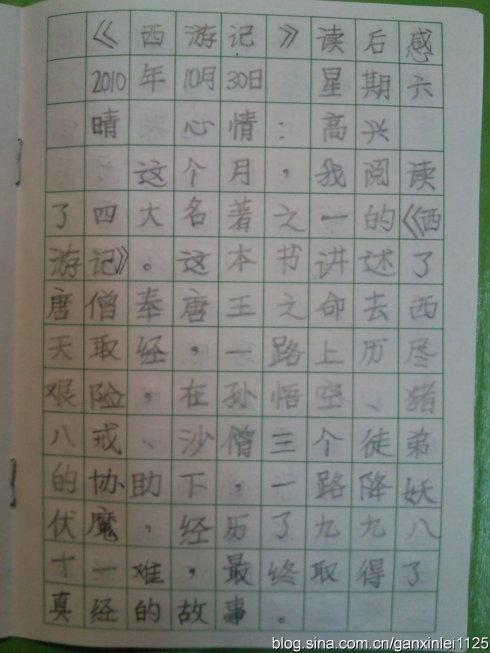 《西游记》读后感
2010年10月30日 星期六
晴 心情：高兴
这个月，我阅读
了四大名著之一的《西
游记》。这本书讲述了
唐僧奉唐王之命去西
天取经，一路上历尽
艰险，在孙悟空、猪
八戒、沙僧三个徒弟
的协助下，一路降妖
伏魔，经历了九九八
十一难，最终取得了
真经的故事。
blog.sina.com.cn/ganxinlei1125